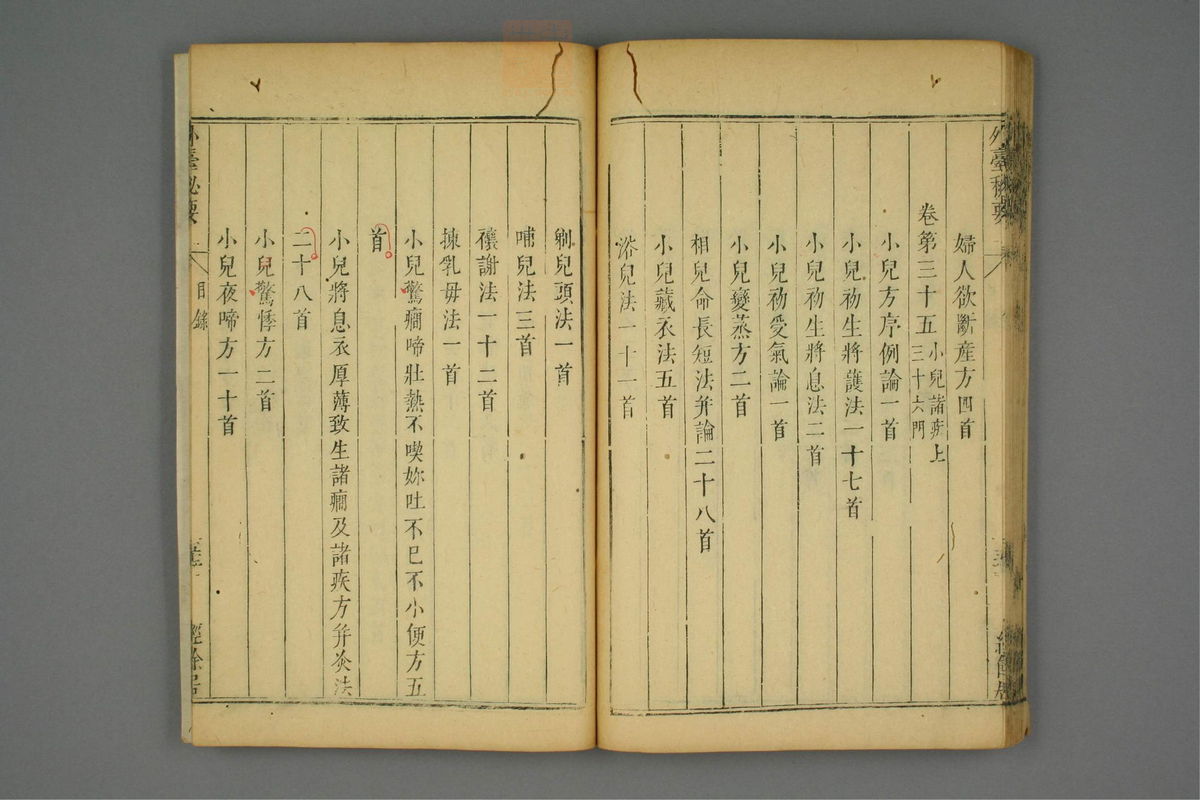 外臺秘要
婦人欲斷産方四首
卷第三十五 小兒諸疾上
三十六門
小兒方序例論一首
小兒初生將護法一十七首
小兒初生將息法二首
小兒初受氣論一首
小兒變蒸方二首
相兒命長短法并論二十八首
小兒藏衣法五首
浴兒法一十一首
剃兒頭法一首
哺兒法三首
攘謝法一十二首
揀乳母法一首
小兒驚癎啼壯熱不喫妳吐不已不小便方五
首
小兒將息衣厚薄致生諸癎及諸疾方并灸法
二十八首
小兒驚悸方二首
小兒夜啼方一十首
外臺秘要
目錄
經餘居